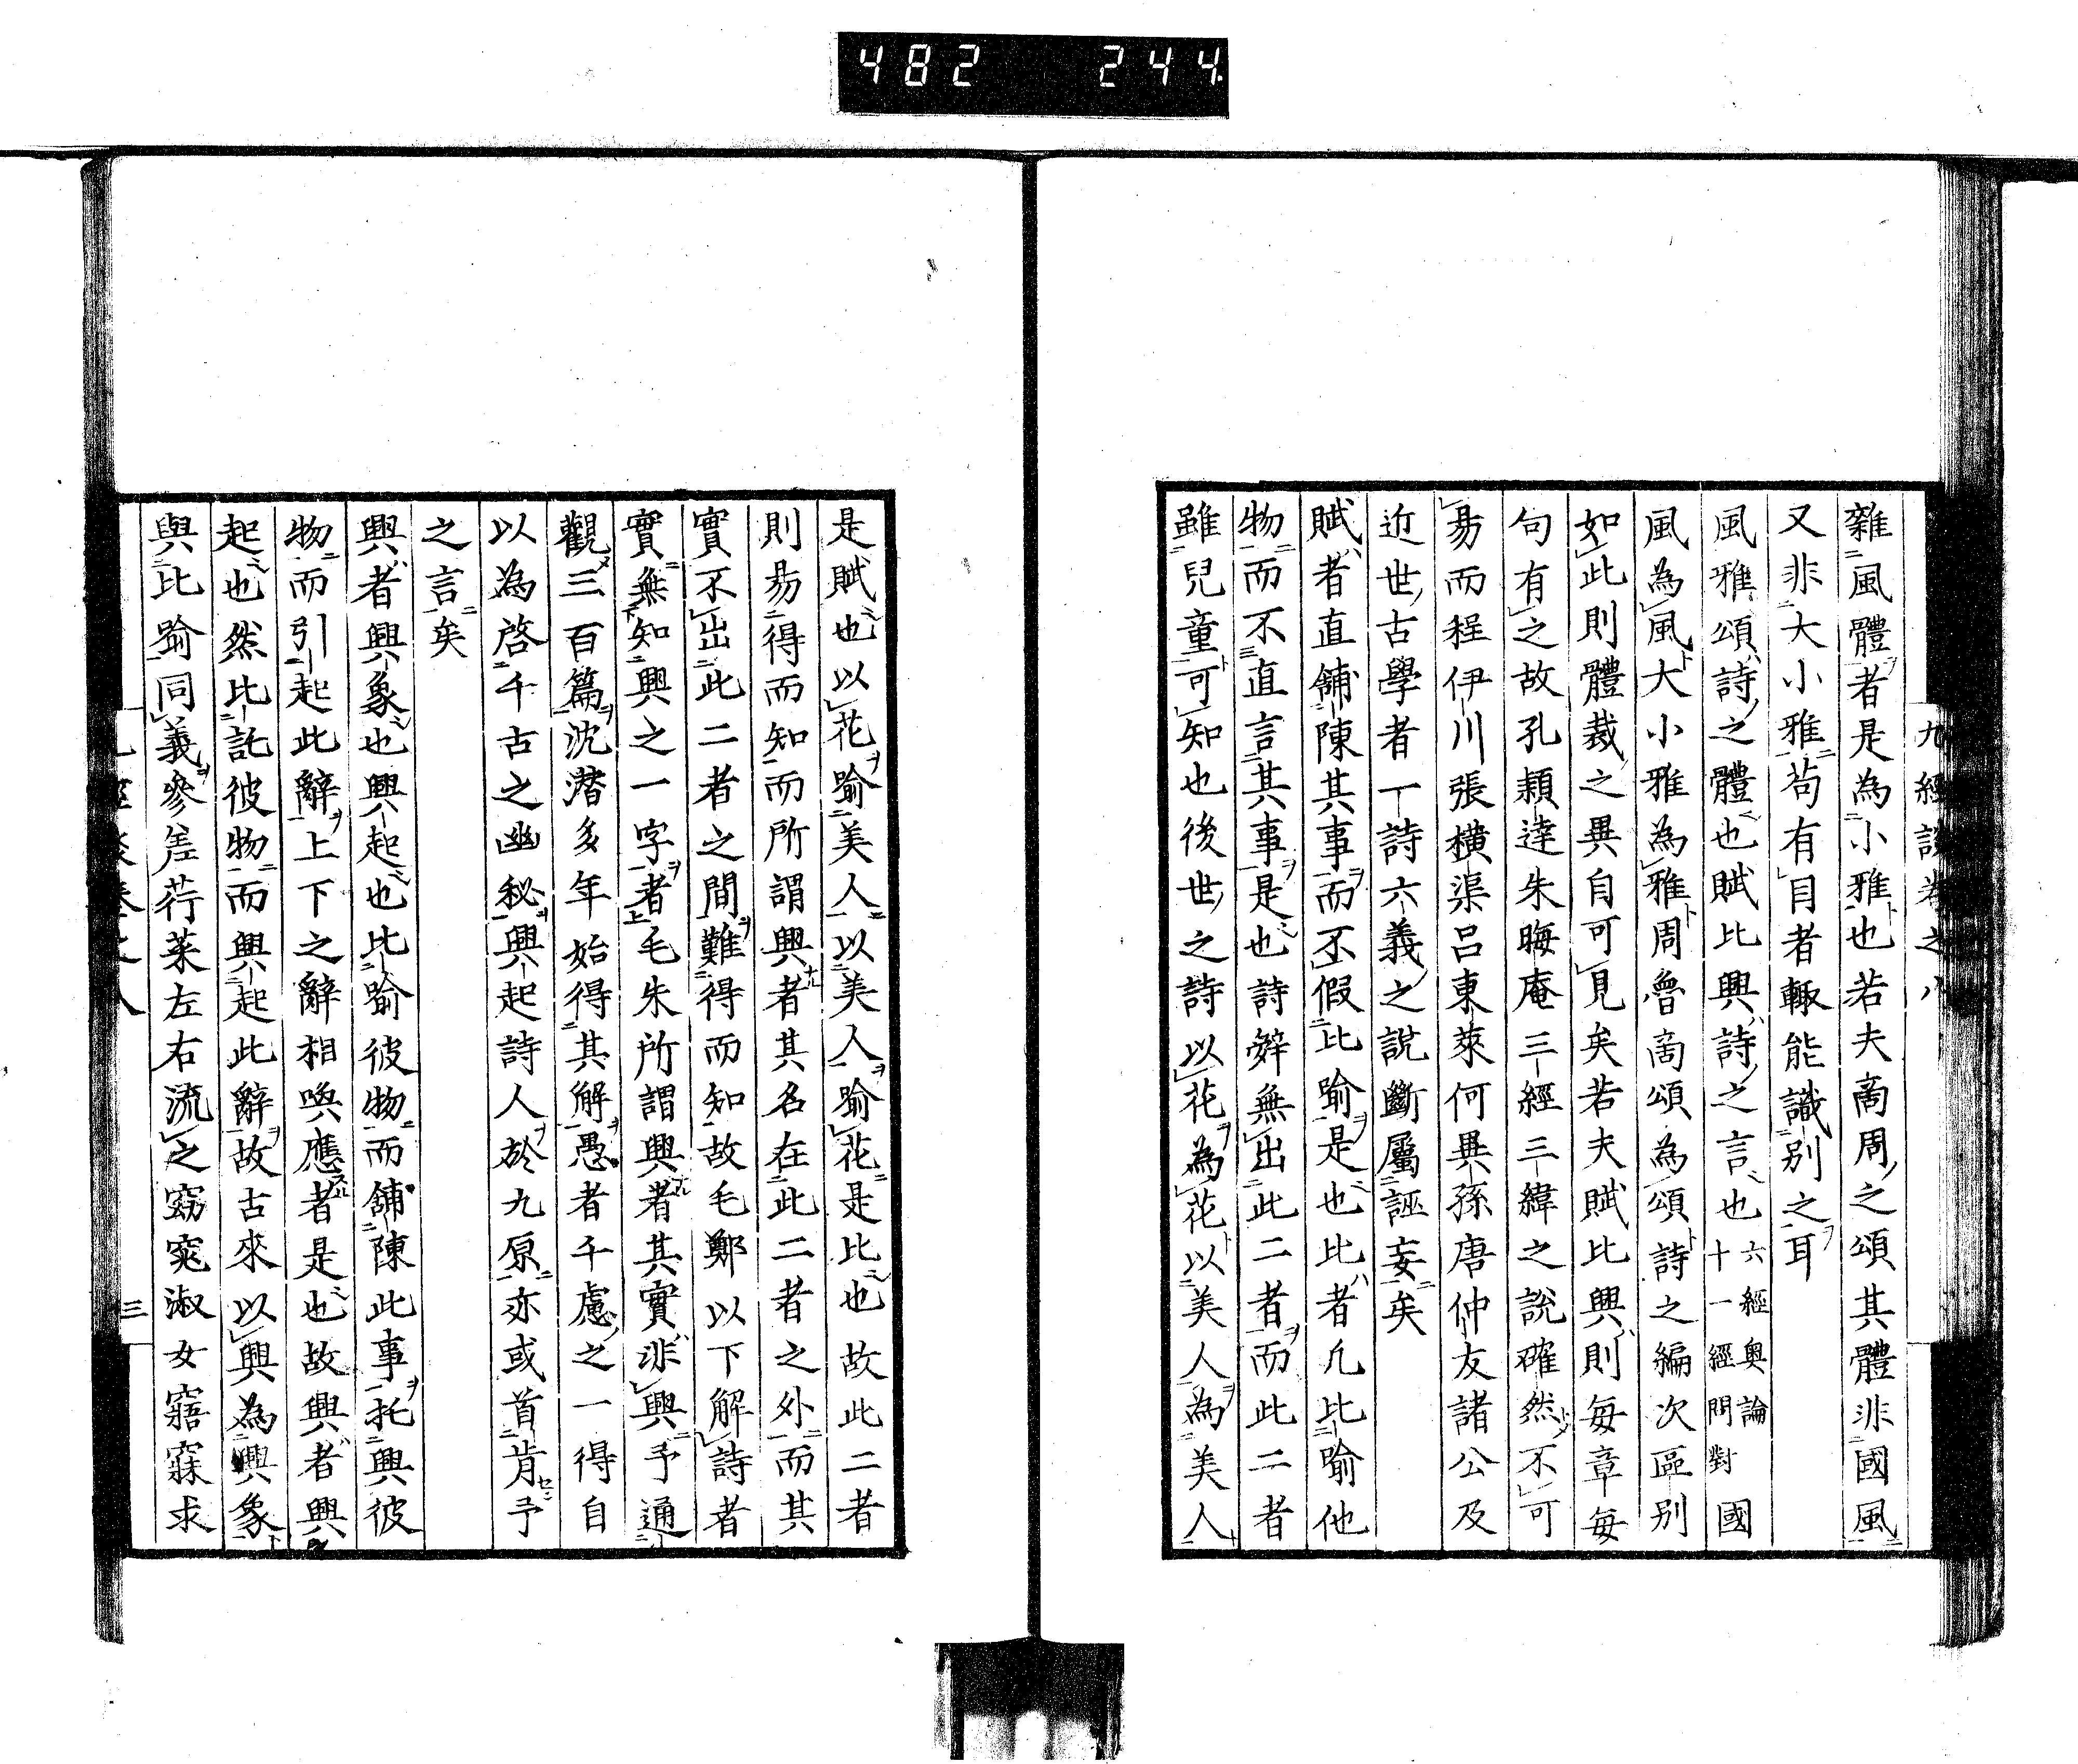 482 244
九經談卷之八
雜風體者是為小雅也若夫商周之頌其體非國風
又非大小雅苟有目者輙能識別之耳
風雅頌詩之體也賦比興詩之言也六經奧論十一經問對國
風為風大小雅為雅周魯商頌為頌詩之編次區別
如此則體裁之異自可見矣若夫賦比興則每章每
句有之故孔穎達朱晦庵三經三緯之說確然不可
易而程伊川張橫渠呂東萊何異孫唐仲友諸公及
近世古學者丁詩六義之說斷屬誣妄矣
賦者直舖陳其事而不假比喻是也比者凡比喻他
物而不直言其事是也詩辭無出此二者而此二者
雖兒童可知也後世之詩以花為花以美人為美人
是賦也以花喻美人以美人喻花是比也故此二者
則易得而知而所謂興者其名在此二者之外而其
實不出此二者之間難得而知故毛鄭以下解詩者
實無知興之一字者毛朱所謂興者其實非興予通
觀三百篇沈潛多年始得其解愚者千慮之一得自
以為啓千古之幽秘興起詩人於九原亦或首肯予
之言矣
興者興象也興起也比喻彼物而舖陳此事托興彼
物而引起此辭上下之辭相喚應者是也故興者興
起也然比託彼物而興起此辭故古來以興為興象
與比喻同義參差荇菜左右流之窈窕淑女寤寐求
三